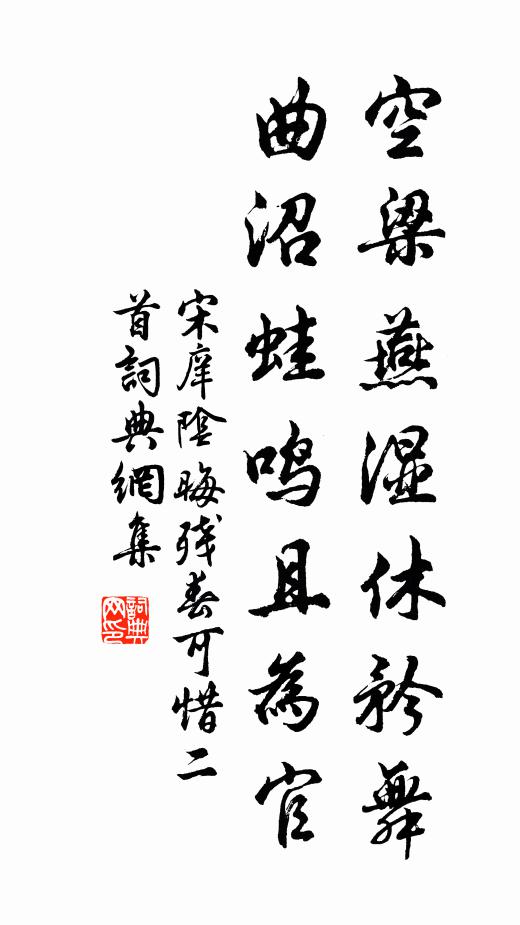 空梁燕湿休矜舞
曲沼蛙鸣且為官
宋庠陰晦残春可惜二
首詞典網集
詞典
网印